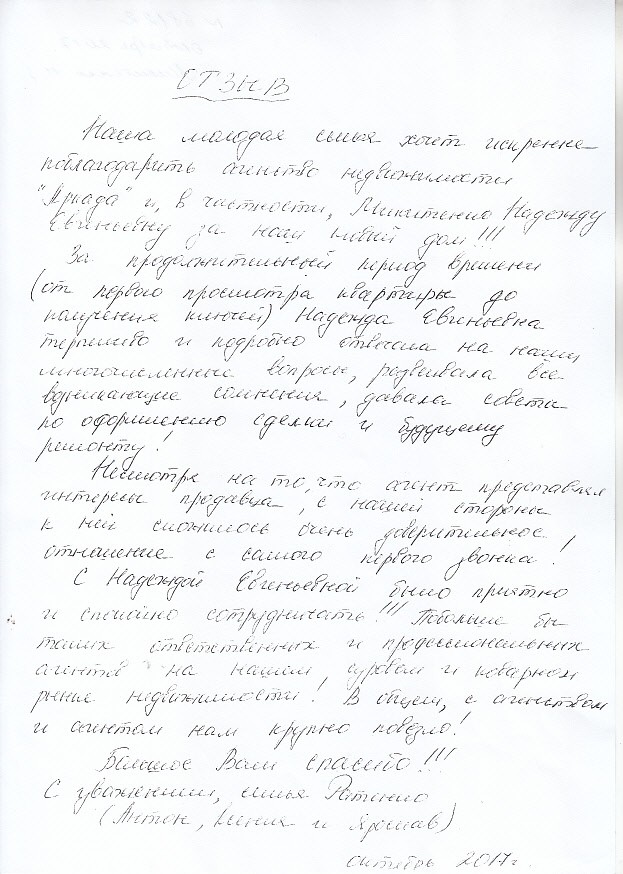 ОТЗЫВ
Наша молодая семья хочет искренне
поблагодарить агенство недвижимости
"Ариада" и, в частности, Микитенко Надежду
Евгеньевну за наш новый дом!!!
За продолжительный период времени
(от первого просмотра квартиры до
получения ключей) Надежда Евгеньевна
терпеливо и подробно отвечала на наши
многочисленные вопросы, развеивала все
возникающие сомнения, давала советы
по оформлению сделки и будущему
ремонту!
Несмотря на то, что агент представлял
интересы продавца, с нашей стороны
к ней сложилось очень доверительное
отношение с самого первого звонка!
С Надеждой Евгеньевной было приятно
и спокойно сотрудничать!!! Побольше бы
таких ответственных и профессиональных
агентов на нашем, суровом и коварном
рынке недвижимости! В общем, с агенством
и агентом нам крупно повезло!
Большое Вам спасибо!!!
С уважением, семья
(Антон, Ксения и Ярослав)
октябрь 2017г.